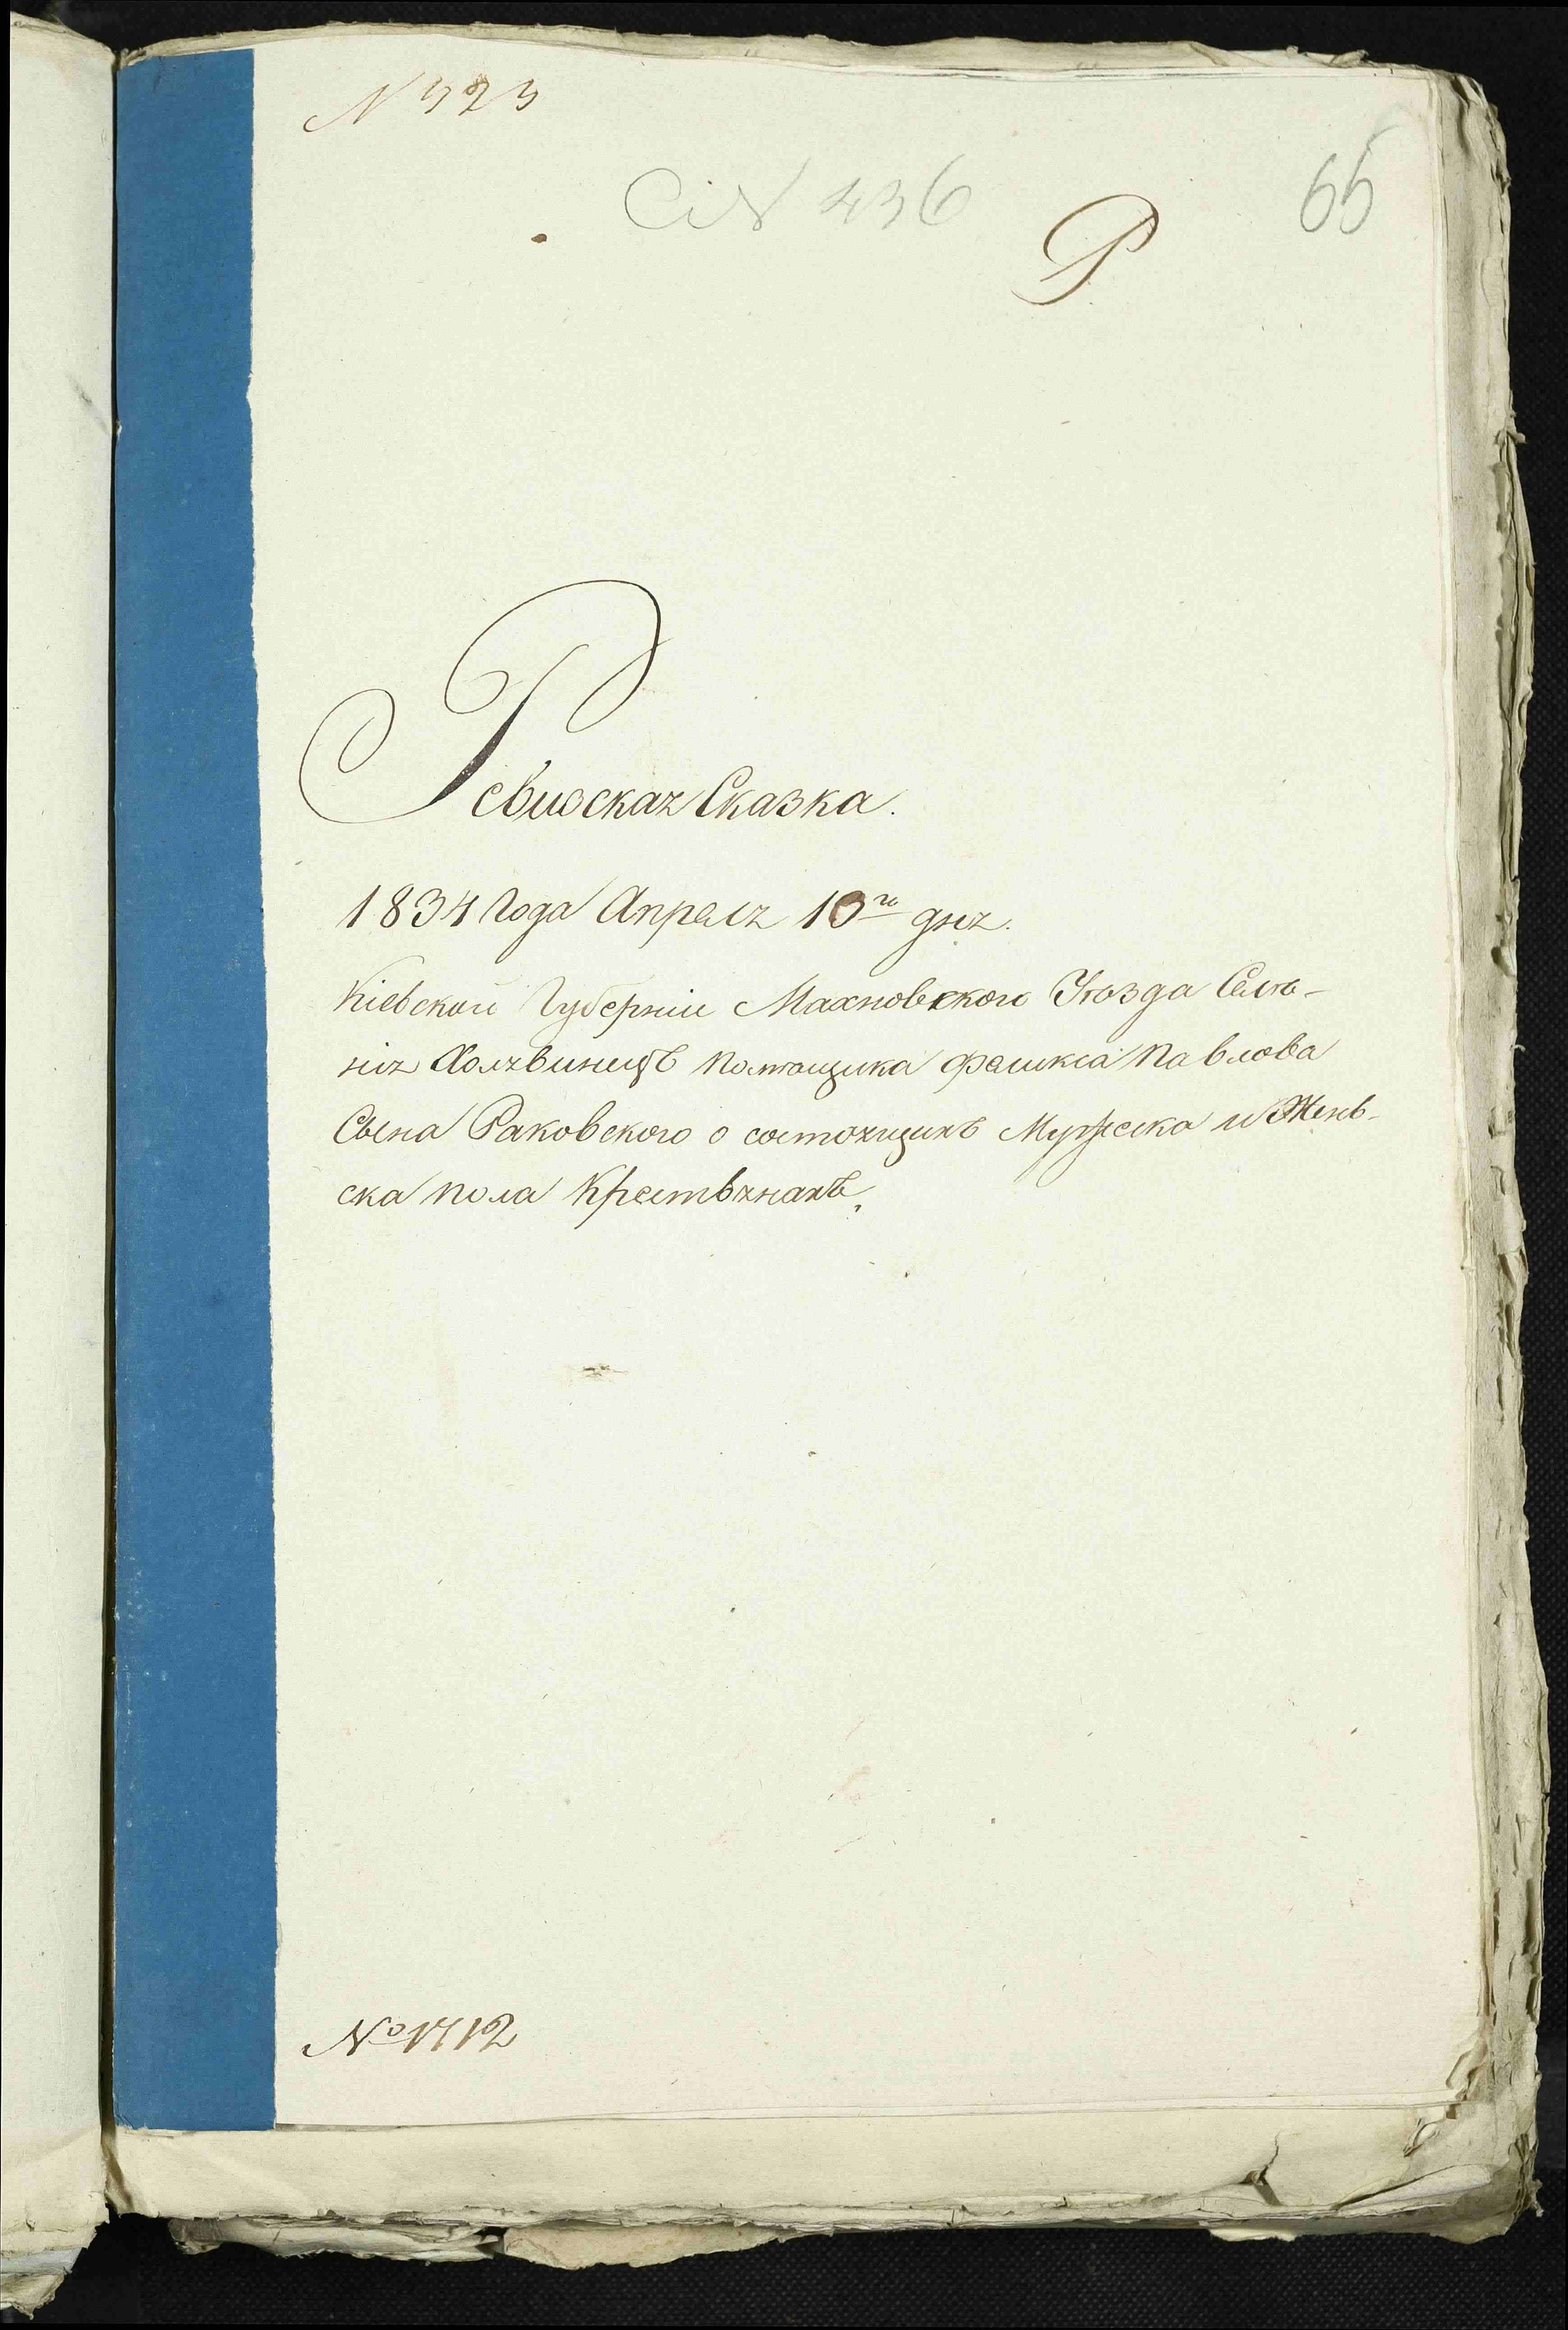 N 323
Ci N 436
65
Р
Ревизская Сказка.
1834 Года Апреля 10го дня.
Кіевской Губерніи Махновского Уѣзда Селѣ-
нія Холявинецъ Помѣщика Феликса Павлова
Сына Раковского о состоящихъ Мужеска и Жень-
ска пола Крестьянахъ.
№ 1712